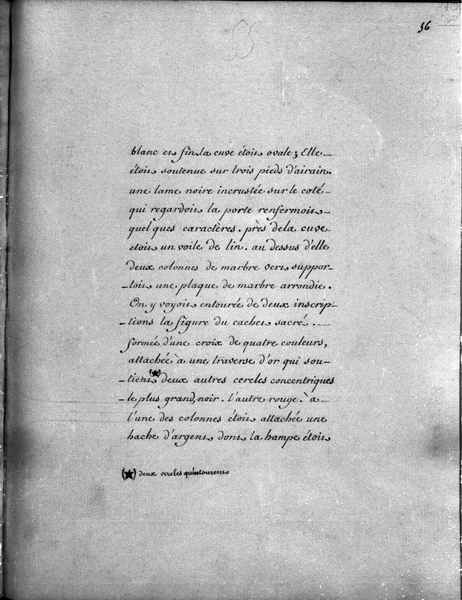 36
blanc et fin. la cuve étoit ovale; Elle
étoit soutenue sur trois pieds d'airain.
une lame noire incrustée sur le coté
qui regardoit la porte renfermoit
quelques caractères. près dela cuve
étoit un voile de lin. au dessus d'elle
deux colonnes de marbre vert suppor-
toit une plaque de marbre arrondie.
On y voyoit entourée de deux inscrip-
-tions la figure du cachet sacré.
formée d'une croix de quatre couleurs,
attachée à une traverse d'or qui sou-
-tient (★) deux autres cercles concentriques
-le plus grand, noir. l'autre rouge. à
l'une des colonnes étoit attachée une
hache d'argent dont la hampe étoit
(★) deux cercles qu'entourent